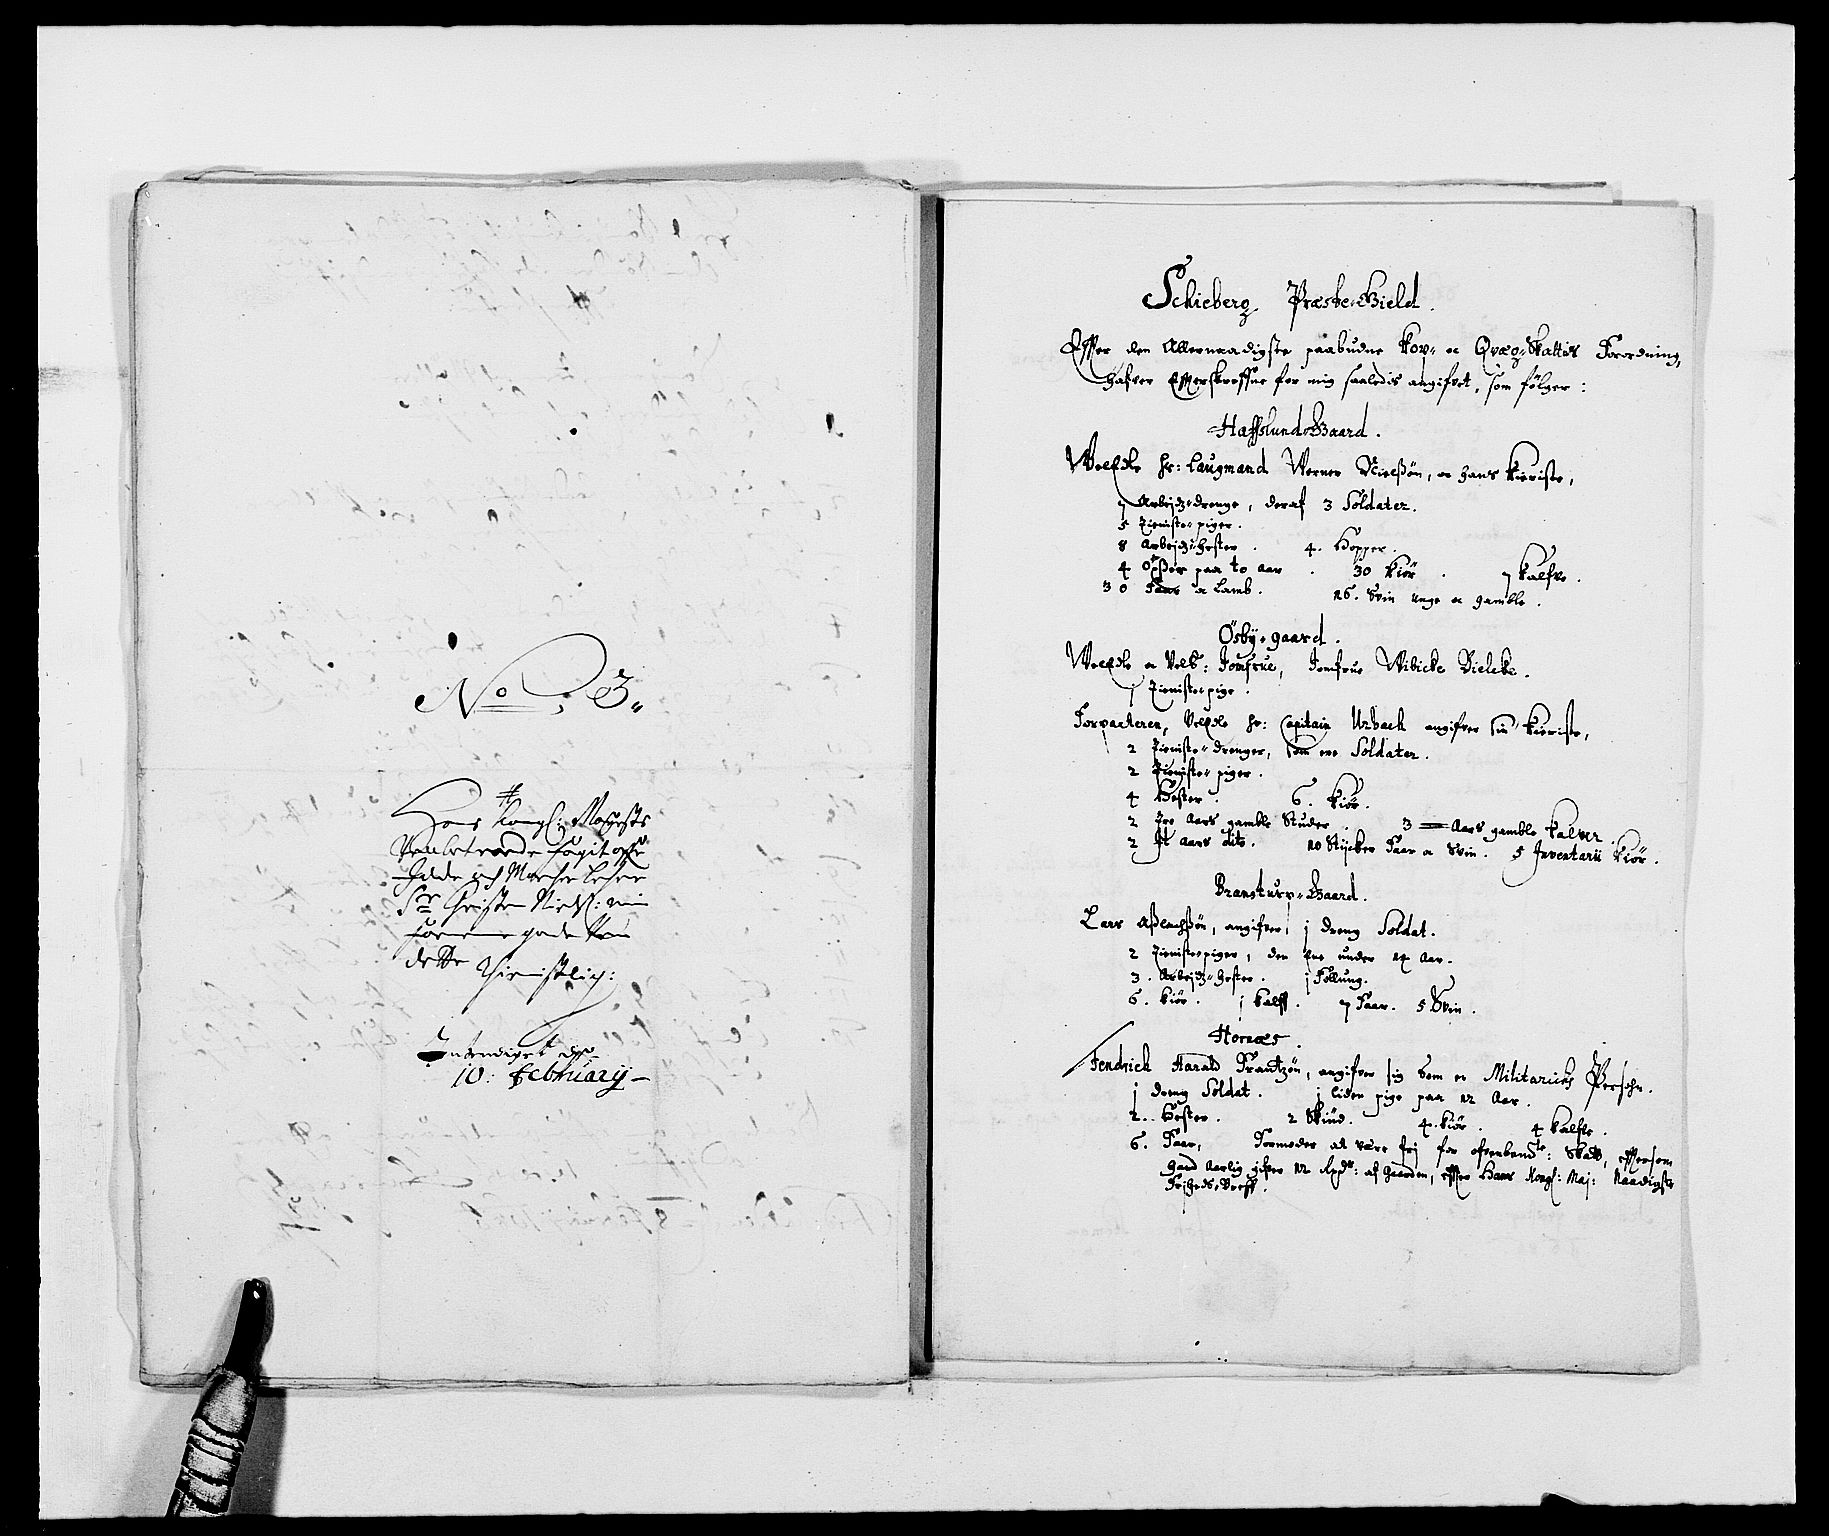 No: 3,,
Hans Kongl: Mayests
Velbetroede fogit ofr
Idde och Marcher Lehne
Sr Christen Nielß: min
gode Ven
dette Tienistlig:
Indendiget dend
10: February
Schieberg Præste-Gield.
Effter den Allernaadigste paabudne Kop- oc Qvæg-Skattis Forordning,
hafver Efferskrefne for mig saaledis angifvet, som følger:
Haffslund-Gaard.
WelEdle Hr: Laugmand Werner Nielßøn, oc hans Kieriste,
7 Arbejdz-drenge, deraf 3 Soldater.
5 Tieniste-piger.
8 Arbejdz-Hester. 4. Hopper.
4 Oxßer paa to Aar. 30 Kiør. 7 Kalfve.
30 Faar oc Lamb. 16. Svin unge oc gamble.
Ösby-gaard.
WelEdle oc Velb: Jomfrue, Jomfrue Wibicke Bielcke.
j Tieniste-pige.
Forpacteren, VelEdle Hr: Capitain Urbach angifver sin Kieriste,
2 Tieniste-drenger, som ere Soldater.
2 Tieniste-piger.
4 Hester. 6. Kiør.
2 Tre Aars gamble Studer. 3 Aars gamble Kalver.
2 It Aars dito. 10 Stÿcker Faar oc Svin. 5 Inventarii Kiør.
Bransturp-Gaard.
Lars Aßlachßøn, angifver j dreng Soldat.
2 Tienistepiger, den Ene under 14 Aar.
3. Arbejdz-Hester. j Føllung.
6. Kiør. j Kalff. 7 Faar. 5 Svin.
Hornæs.
Fendrich Harald Frantzøn, angifver sig som en Militarisch Persohn.
j dreng Soldat. j liden pige paa 12 Aar.
2.. Hester. 2 Stüd. 4. Kiør. 4 Kalfve.
6. Faar, Formoder at være frj for ofvenbemte: Skatt, effersom
Hand Aarlig gifver 12 Rxdr: af Gaarden, effter Hans Kongl: Maj: Naadigste
Frjheds-Breff.